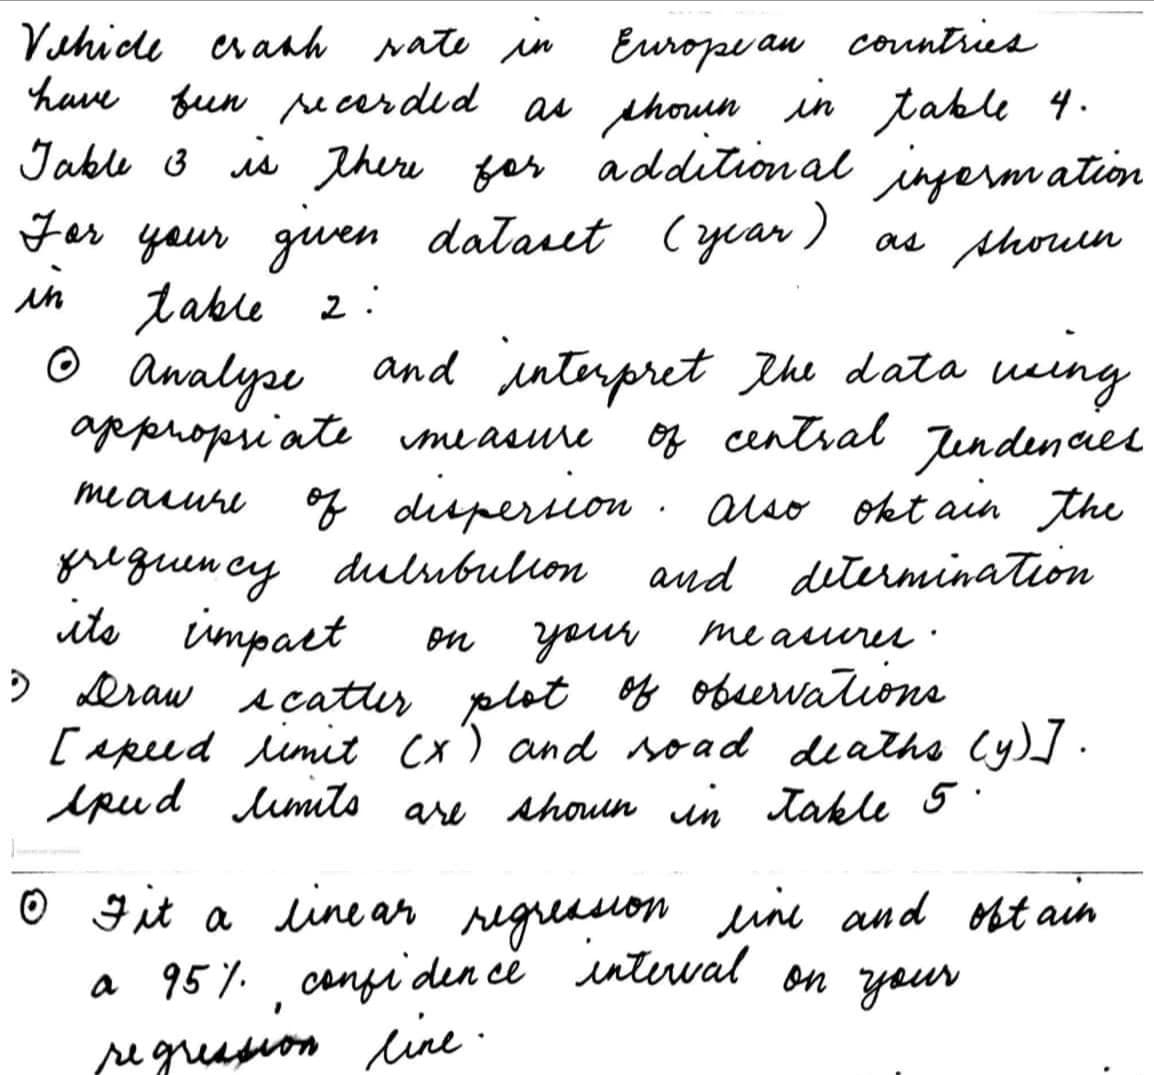 Vehicle crash rate in European countries
have been recorded as shown in table 4.
Table 3 is there for additional information
For your given dataset (year) as shown
in table 2:
⊙ Analyse and interpret the data using
appropriate measure of central Tendencies
measure of dispersion. Also obtain the
frequency distribution and determination
its impact on your measures.
⊙ Draw scatter plot of observations
[speed limit (x) and road deaths (y)].
speed limits are shown in Table 5.
⊙ Fit a linear regression line and obtain
a 95%. confidence interval on your
regression line.